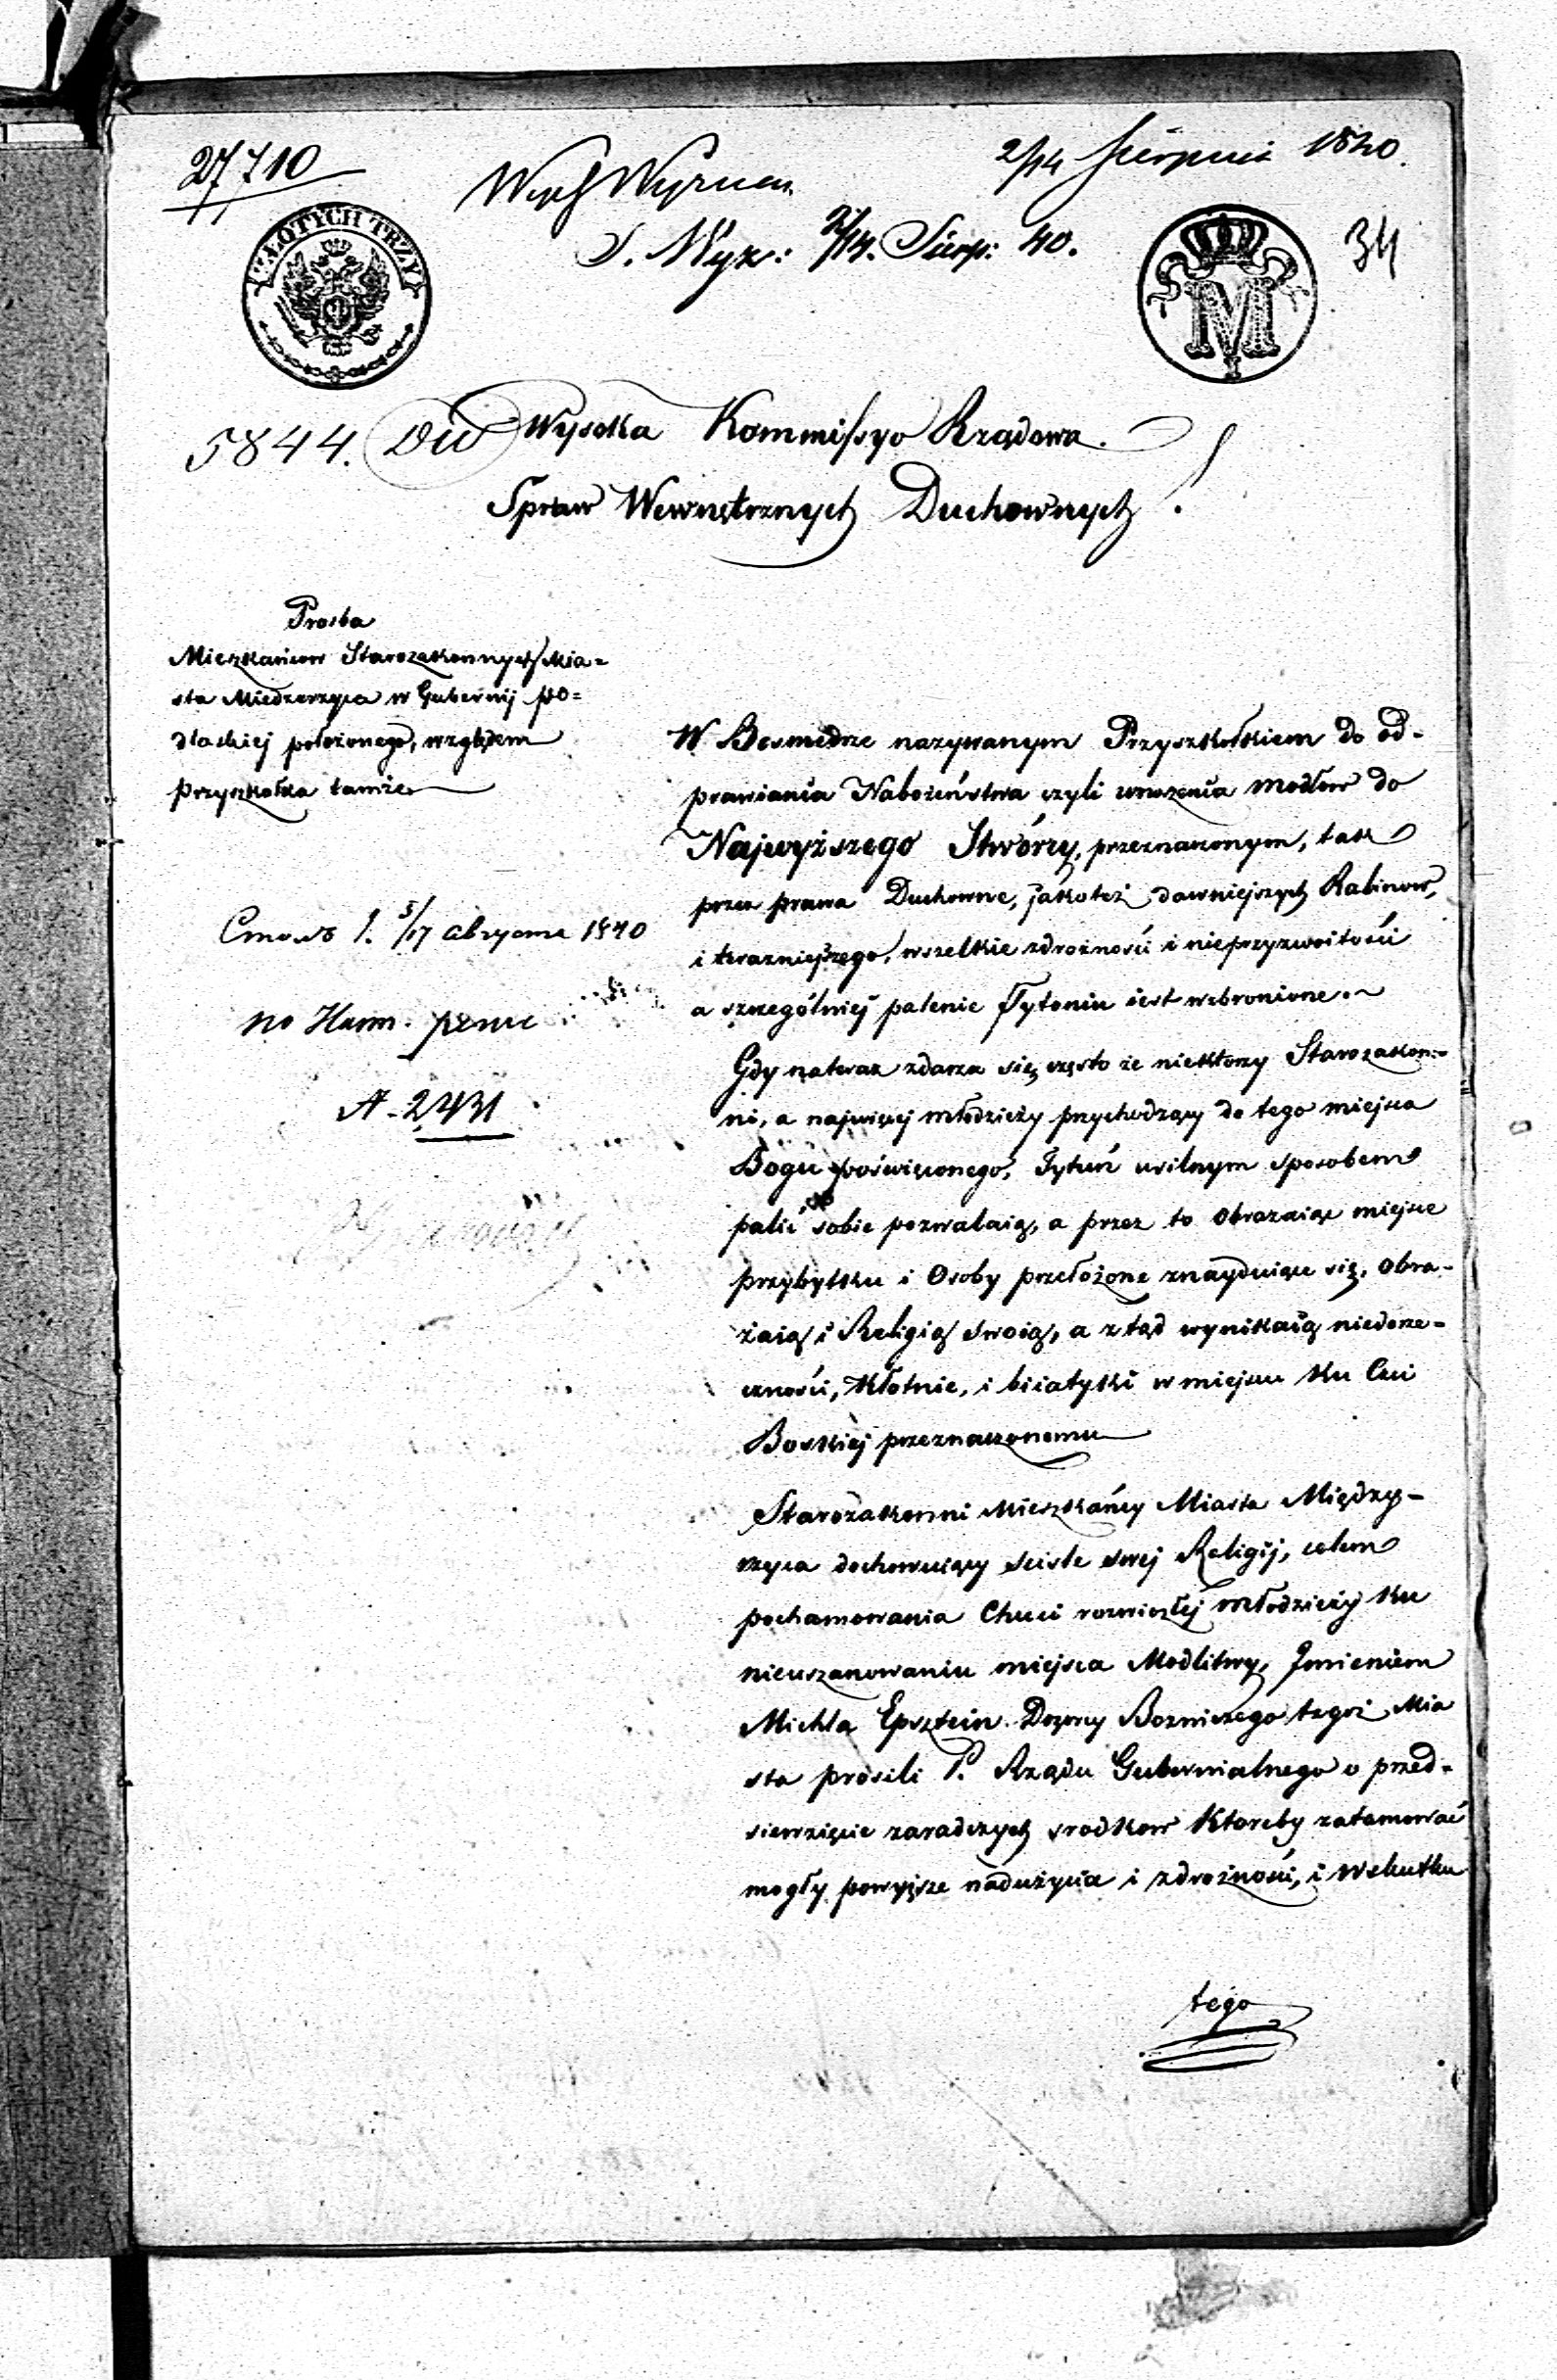 27710
2/14 Sierpnia 1840.
S. Wyz: 2/14. Sierp: 40.
34
ZŁOTYCH TRZY
M
5844. Wysoka Kommissyo Rządowa
Spraw Wewnętrznych Duchownych!
Prosba
Mieszkańcow Starozakonnych Mia=
sta Miedzerzyca w Gubernij Po=
dlaskiej położonego, względem
przyszkołka tamże
5/17 1840
No
A-2431
W Besmedrze nazywanym Przyszkołkiem do od-
prawiania Nabożeństwa czyli wnoszenia modłow do
Najwyższego Stwórcy, przeznaczonym, tak
przez prawa Duchowne, jakoteż dawniejszych Rabinow,
i terazniejszego, wszelkie zdrożności i nieprzyzwoitości
a szczególniej palenie Tytoniu iest wzbronione.~
Gdy nateraz zdarza się często że niektorzy Starozakon=
ni, a najwięcej młodzieży przychodzący do tego miejsca
Bogu poświęconego, Tytuń usilnym sposobem
palić sobie pozwalaią, a przez to obrażaiąc miejsce
przybytku i Osoby przełożone znayduiące się, obra-
żaią i Religią swoią, a ztąd wynikaią niedorze-
czności, kłotnie, i biiatyki w miejscu ku Czci
Boskiej przeznaczonemu
Starozakonni Mieszkańcy Miasta Między-
rzyca dochowuiący sciśle swej Religij, celem
pochamowania Chuci rozwiezłej młodzieży ku
nieuszanowaniu miejsca Modlitwy, Imieniem
Michla Epsztein Dozorcy Bozniczego tegoż Mia
sta prosili P. Rządu Gubernialnego o przed-
sięwzięcie zaradczych srodkow ktoreby zatamować
mogły powyższe nadużycia i zdrożności, i wskutku
tego